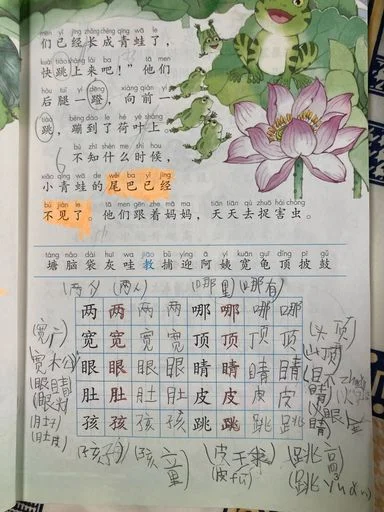 men yǐ jīng zhǎng chéng qīng wā le
们已经长成青蛙了，
kuài tiào shàng lái ba tā men
快跳上来吧！”他们
hòu tuǐ yì dēng xiàng qián yí
后腿一蹬，向前一
tiào bèng dào le hé yè shàng
跳，蹦到了荷叶上。
bù zhī shén me shí hou
6 不知什么时候，
xiǎo qīng wā de wěi ba yǐ jīng
小青蛙的尾巴已经
bú jiàn le tā men gēn zhe mā ma tiān tiān qù zhuō hài chóng
不见了。他们跟着妈妈，天天去捉害虫。
táng nǎo dài huī wā jiāo bǔ yíng ā yí kuān guī dǐng pī gǔ
塘脑袋灰哇教捕迎阿姨宽龟顶披鼓
(两个) (两人) (哪里) (哪有)
两两两两哪哪哪哪
宽宽宽宽顶顶顶顶
眼眼眼眼睛睛睛睛
肚肚肚肚皮皮皮皮
孩孩孩孩跳跳跳跳
(宽广)
(宽大)
(眼睛)
(肚子)
(头顶)
(山顶)
(孩子)
(跳高)